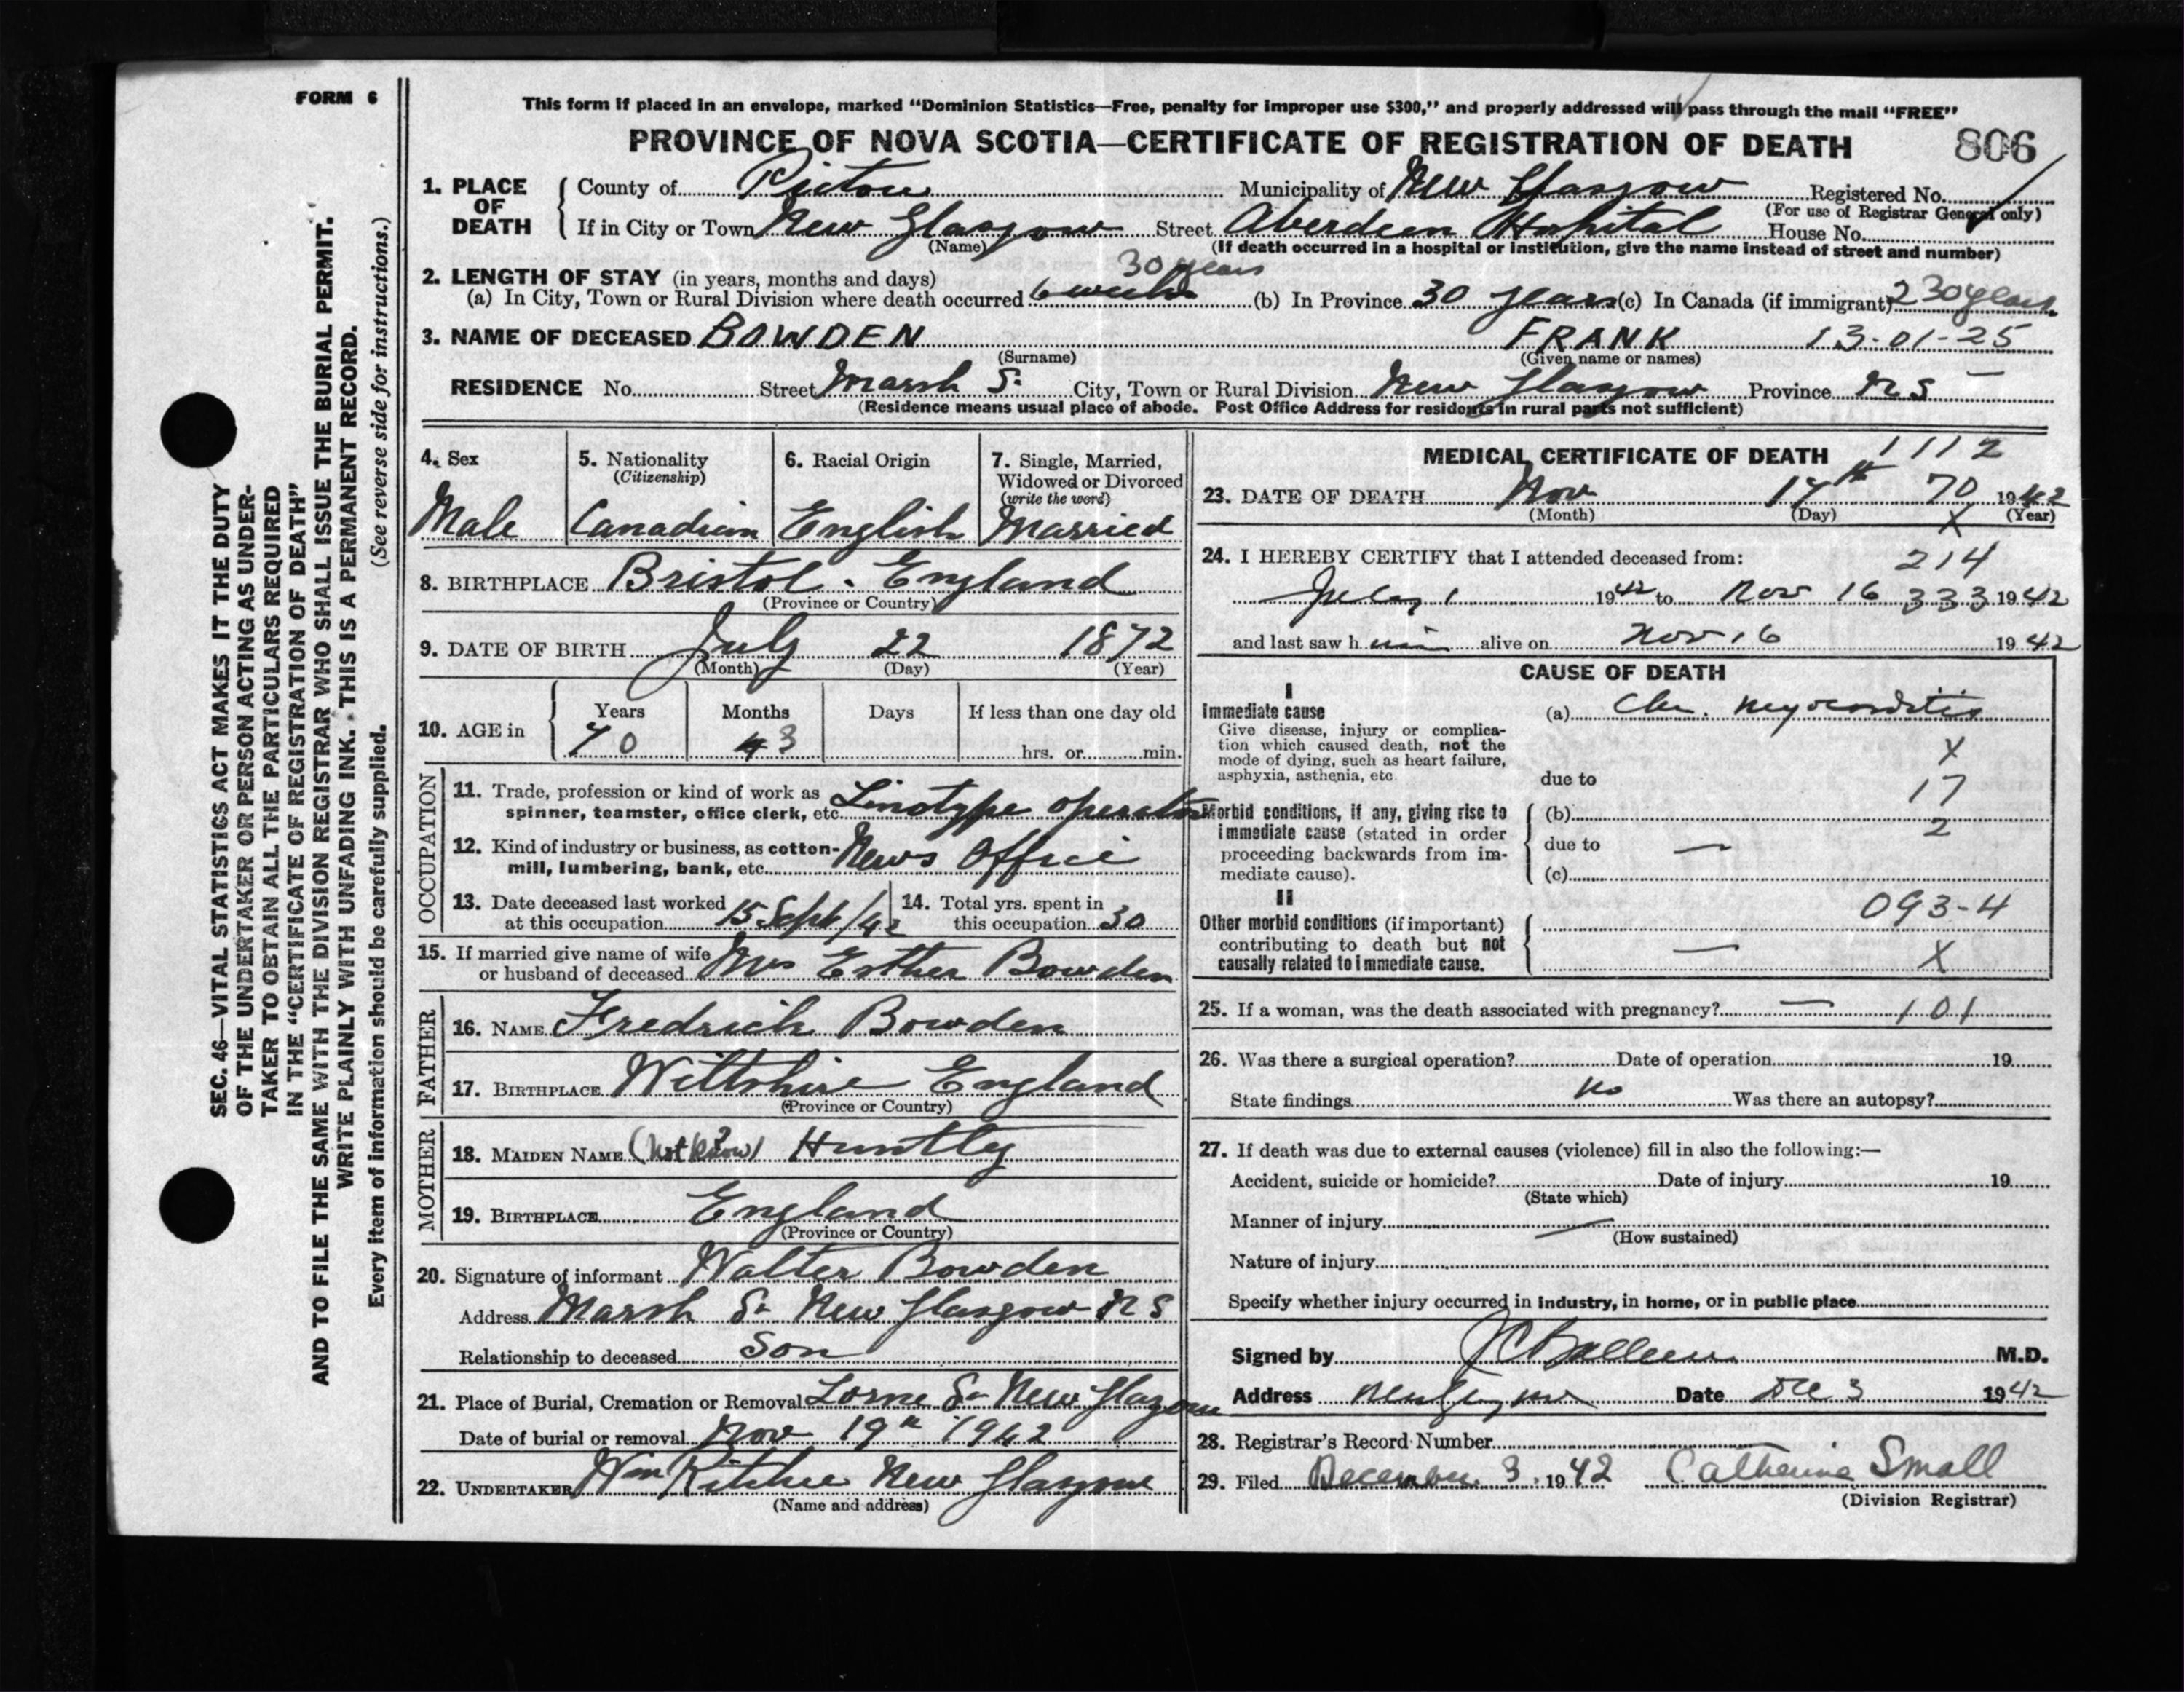 FORM 6
This form if placed in an envelope, marked “Dominion Statistics—Free, penalty for improper use $300,” and properly addressed will pass through the mail “FREE”
PROVINCE OF NOVA SCOTIA—CERTIFICATE OF REGISTRATION OF DEATH 806
1. PLACE OF DEATH County of Pictou Municipality of New Glasgow Registered No.
(For use of Registrar General only)
If in City or Town New Glasgow Street Aberdeen Hospital House No.
(Name) (If death occurred in a hospital or institution, give the name instead of street and number)
2. LENGTH OF STAY (in years, months and days) 30 years
(a) In City, Town or Rural Division where death occurred 6 weeks (b) In Province 30 years (c) In Canada (if immigrant) 30 years
3. NAME OF DECEASED BOWDEN FRANK 13-01-25
(Surname) (Given name or names)
RESIDENCE No. Street Marsh St City, Town or Rural Division New Glasgow Province N S
(Residence means usual place of abode. Post Office Address for residents in rural parts not sufficient)
4. Sex 5. Nationality (Citizenship) 6. Racial Origin 7. Single, Married, Widowed or Divorced (write the word)
Male Canadian English Married
8. BIRTHPLACE Bristol. England
(Province or Country)
9. DATE OF BIRTH July 22 1872
(Month) (Day) (Year)
10. AGE in Years Months Days If less than one day old
70 3 hrs. or min.
OCCUPATION
11. Trade, profession or kind of work as spinner, teamster, office clerk, etc. Linotype operator
12. Kind of industry or business, as cotton-mill, lumbering, bank, etc. News Office
13. Date deceased last worked at this occupation 15 Sept/42
14. Total yrs. spent in this occupation 30
15. If married give name of wife or husband of deceased Mrs Esther Bowden
FATHER
16. NAME Fredrich Bowden
17. BIRTHPLACE Wiltshire England
(Province or Country)
MOTHER
18. MAIDEN NAME (Not Know) ? Huntly
19. BIRTHPLACE England
(Province or Country)
20. Signature of informant Walter Bowden
Address Marsh St New Glasgow N S
Relationship to deceased Son
21. Place of Burial, Cremation or Removal Lorne St New Glasgow
Date of burial or removal Nov 19th 1942
22. UNDERTAKER Wm Ritchie New Glasgow
(Name and address)
MEDICAL CERTIFICATE OF DEATH 1112
23. DATE OF DEATH Nov 17th 70 1942
(Month) (Day) (Year)
X
24. I HEREBY CERTIFY that I attended deceased from:
214
July 1 1942 to Nov 16 333 1942
and last saw him alive on Nov 16 1942
CAUSE OF DEATH
I
Immediate cause (a) Chr. myocarditis
Give disease, injury or complication which caused death, not the mode of dying, such as heart failure, asphyxia, asthenia, etc.
X
due to 17
Morbid conditions, if any, giving rise to immediate cause (stated in order proceeding backwards from immediate cause).
(b) 2
due to —
(c)
II
093-4
Other morbid conditions (if important) contributing to death but not causally related to immediate cause. — X
25. If a woman, was the death associated with pregnancy? — 101
26. Was there a surgical operation? Date of operation 19
State findings No Was there an autopsy?
27. If death was due to external causes (violence) fill in also the following:—
Accident, suicide or homicide? Date of injury 19
(State which)
Manner of injury —
(How sustained)
Nature of injury
Specify whether injury occurred in industry, in home, or in public place
Signed by M.D.
Address New Glasgow Date Dec 3 1942
28. Registrar’s Record Number
29. Filed December 3 1942 Catherine Small
(Division Registrar)
SEC. 46—VITAL STATISTICS ACT MAKES IT THE DUTY
OF THE UNDERTAKER OR PERSON ACTING AS UNDER-
TAKER TO OBTAIN ALL THE PARTICULARS REQUIRED
IN THE “CERTIFICATE OF REGISTRATION OF DEATH”
AND TO FILE THE SAME WITH THE DIVISION REGISTRAR WHO SHALL ISSUE THE BURIAL PERMIT.
WRITE PLAINLY WITH UNFADING INK. THIS IS A PERMANENT RECORD.
Every item of information should be carefully supplied. (See reverse side for instructions.)